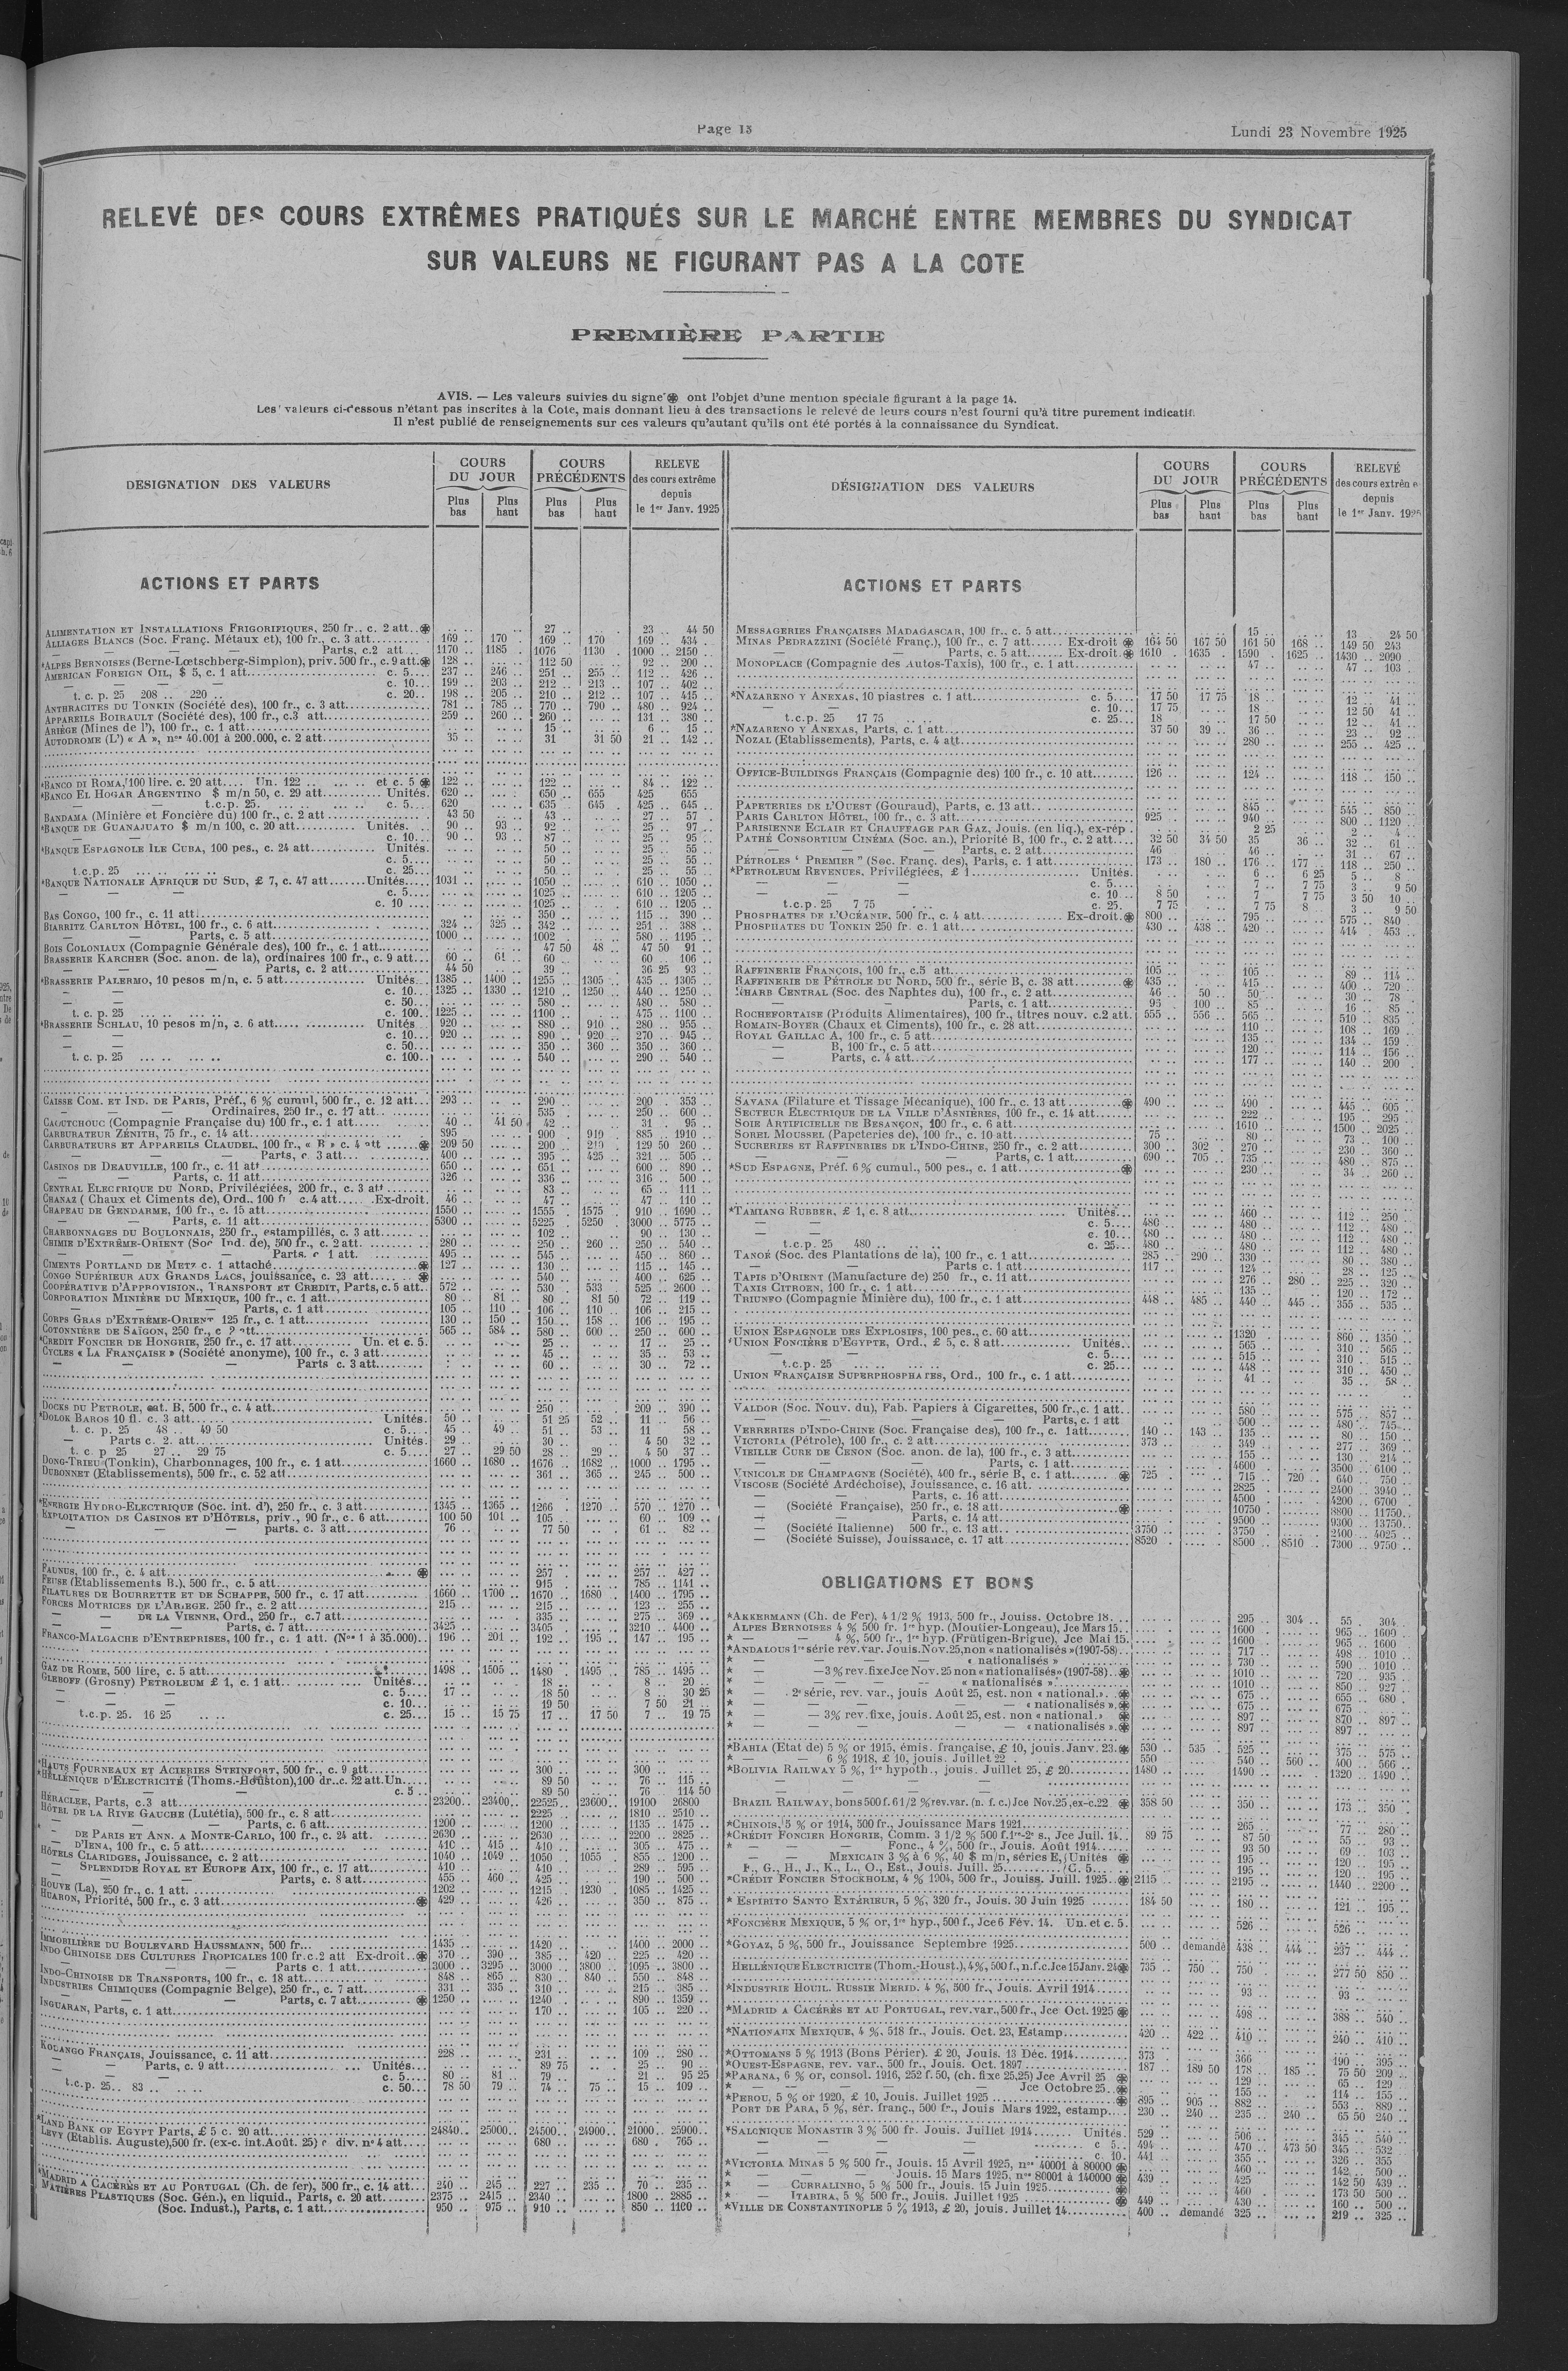 Page 13
Lundi 23 Novembre 1925
RELEVÉ DES COURS EXTRÊMES PRATIQUÉS SUR LE MARCHÉ ENTRE MEMBRES DU SYNDICAT
SUR VALEURS NE FIGURANT PAS A LA COTE
PREMIÈRE PARTIE
AVIS. — Les valeurs suivies du signe ֍ ont l'objet d'une mention spéciale figurant à la page 14.
Les valeurs ci-dessous n'étant pas inscrites à la Cote, mais donnant lieu à des transactions le relevé de leurs cours n'est fourni qu'à titre purement indicatif.
Il n'est publié de renseignements sur ces valeurs qu'autant qu'ils ont été portés à la connaissance du Syndicat.
DESIGNATION DES VALEURS
COURS DU JOUR
COURS PRÉCÉDENTS
RELEVE des cours extrême depuis le 1er Janv. 1925
Plus bas
Plus haut
Plus bas
Plus haut
ACTIONS ET PARTS
ALIMENTATION ET INSTALLATIONS FRIGORIFIQUES, 250 fr., c. 2 att. 27 .. 23 .. 44 50
ALLIAGES BLANCS (Soc. Franç. Métaux et), 100 fr., c. 3 att. 169 .. 170 .. 169 .. 170 .. 169 .. 434 ..
— — Parts, c.2 att. 1170 .. 1185 .. 1076 .. 1130 .. 1000 .. 2150 ..
*ALPES BERNOISES (Berne-Lœtschberg-Simplon), priv. 500 fr., c. 9 att. 128 .. 112 50 92 .. 200 ..
AMERICAN FOREIGN OIL, $ 5, c. 1 att. c. 5 237 .. 246 .. 251 .. 255 .. 112 .. 426 ..
— — c. 10 199 .. 203 .. 212 .. 213 .. 107 .. 402 ..
t. c. p. 25 208 .. 220 .. c. 20 198 .. 205 .. 210 .. 212 .. 107 .. 415 ..
ANTHRACITES DU TONKIN (Société des), 100 fr., c. 3 att. 781 .. 785 .. 770 .. 790 .. 480 .. 924 ..
APPAREILS BOIRAULT (Société des), 100 fr., c.3 att. 259 .. 260 .. 260 .. 131 .. 380 ..
ARIÈGE (Mines de l'), 100 fr., c. 1 att. 15 .. 6 .. 15 ..
AUTODROME (L') « A », nos 40.001 à 200.000, c. 2 att. 35 .. 31 31 50 21 .. 142 ..
*BANCO DI ROMA, 100 lire, c. 20 att. Un. 122 .. et c. 5 122 .. 122 .. 84 .. 122 ..
*BANCO EL HOGAR ARGENTINO $ m/n 50, c. 29 att. Unités. 620 .. 650 .. 655 425 655
— — t.c.p. 25. c. 5 620 635 .. 645 .. 425 .. 645 ..
BANDAMA (Minière et Foncière du) 100 fr., c. 2 att. 43 50 43 .. 27 .. 57 ..
*BANQUE DE GUANAJUATO $ m/n 100, c. 20 att. Unités. 90 .. 93 .. 92 .. 25 .. 97 ..
— — c. 10 90 .. 93 .. 87 .. 25 .. 95 ..
*BANQUE ESPAGNOLE ILE CUBA, 100 pes., c. 24 att. Unités. 50 .. 25 .. 55 ..
c. 5 50 .. 25 .. 55 ..
t.c.p. 25 c. 25 50 .. 25 .. 55 ..
*BANQUE NATIONALE AFRIQUE DU SUD, £ 7, c. 47 att. Unités 1031 .. 1050 .. 610 .. 1050 ..
c. 5 1025 .. 610 .. 1205 ..
c. 10 1025 .. 610 .. 1205 ..
BAS CONGO, 100 fr., c. 11 att. 350 .. 115 .. 390 ..
BIARRITZ CARLTON HÔTEL, 100 fr., c. 6 att. 324 .. 325 .. 342 .. 251 .. 388 ..
— — Parts, c. 5 att. 1000 .. 1002 .. 580 .. 1195 ..
BOIS COLONIAUX (Compagnie Générale des), 100 fr., c. 1 att. 47 50 48 .. 47 50 91 ..
BRASSERIE KARCHER (Soc. anon. de la), ordinaires 100 fr., c. 9 att. 60 .. 61 .. 60 .. 60 .. 106 ..
— — Parts, c. 2 att. 44 50 39 .. 36 25 93
*BRASSERIE PALERMO, 10 pesos m/n, c. 5 att. Unités 1385 .. 1400 .. 1255 .. 1305 .. 435 .. 1305 ..
c. 10 1325 .. 1330 .. 1210 .. 1250 .. 440 .. 1250 ..
c. 50 580 .. 480 .. 580 ..
t. c. p. 25 c. 100 1225 .. 1100 .. 475 .. 1100 ..
*BRASSERIE SCHLAU, 10 pesos m/n, c. 6 att. Unités 920 .. 880 .. 910 .. 280 .. 955 ..
c. 10 920 .. 890 .. 920 .. 270 .. 945 ..
c. 50 350 .. 360 .. 350 .. 360 ..
t. c. p. 25 c. 100 540 .. 290 .. 540 ..
CAISSE COM. ET IND. DE PARIS, Préf., 6 % cumul, 500 fr., c. 12 att. 293 .. 290 .. 200 .. 353 ..
— — Ordinaires, 250 fr., c. 17 att. 535 .. 250 .. 600 ..
CAOUTCHOUC (Compagnie Française du) 100 fr., c. 1 att. 40 .. 41 50 42 .. 31 .. 95 ..
CARBURATEUR ZÉNITH, 75 fr., c. 14 att. 895 .. 900 .. 910 .. 885 .. 1910 ..
CARBURATEURS ET APPAREILS CLAUDEL, 100 fr., « B » c. 4 att. 209 50 200 .. 210 .. 129 50 260 ..
— — Parts, c. 3 att. 400 .. 395 .. 425 .. 321 .. 505 ..
CASINOS DE DEAUVILLE, 100 fr., c. 11 att. 650 .. 651 .. 600 .. 890 ..
— — Parts, c. 11 att. 326 .. 336 .. 316 .. 500 ..
CENTRAL ELECTRIQUE DU NORD, Privilégiées, 200 fr., c. 3 att. 83 .. 65 .. 111 ..
CHANAZ (Chaux et Ciments de), Ord., 100 fr c. 4 att. Ex-droit. 46 .. 47 .. 47 .. 110 ..
CHAPEAU DE GENDARME, 100 fr., c. 15 att. 1550 .. 1555 .. 1575 .. 910 .. 1690 ..
— — Parts, c. 11 att. 5300 .. 5225 .. 5250 3000 .. 5775 ..
CHARBONNAGES DU BOULONNAIS, 250 fr., estampillés, c. 3 att. 102 .. 90 .. 130 ..
CHIMIE D'EXTRÊME-ORIENT (Soc Ind. de), 500 fr., c. 2 att. 280 .. 250 .. 260 .. 250 .. 540 ..
— — Parts. c 1 att. 495 .. 545 .. 450 .. 860 ..
CIMENTS PORTLAND DE METZ c. 1 attaché 127 .. 130 .. 115 .. 145 ..
CONGO SUPÉRIEUR AUX GRANDS LACS, jouissance, c. 23 att. 540 .. 400 .. 625 ..
COOPÉRATIVE D'APPROVISION., TRANSPORT ET CREDIT, Parts, c. 5 att. 572 .. 530 .. 533 .. 525 .. 2600 ..
CORPORATION MINIÈRE DU MEXIQUE, 100 fr., c. 1 att. 80 .. 81 .. 80 .. 81 50 72 .. 119 ..
— — Parts, c. 1 att. 105 .. 110 .. 106 .. 110 .. 106 .. 215 ..
CORPS GRAS D'EXTRÊME-ORIENT 125 fr., c. 1 att. 130 .. 150 .. 150 .. 158 .. 106 .. 195 ..
COTONNIÈRE DE SAÏGON, 250 fr., c 2 att. 565 .. 584 .. 580 .. 600 .. 250 .. 600 ..
*CREDIT FONCIER DE HONGRIE, 250 fr., c. 17 att. Un. et c. 5. 25 .. 17 .. 25 ..
CYCLES « LA FRANÇAISE » (Société anonyme), 100 fr., c. 3 att. 45 .. 35 .. 53 ..
— — Parts c. 3 att. 60 .. 30 .. 72 ..
DOCKS DU PETROLE, cat. B, 500 fr., c. 4 att. 250 .. 209 .. 390 ..
*DOLOK BAROS 10 fl. c. 3 att. Unités. 50 .. 51 25 52 .. 11 .. 56 ..
t. c. p. 25 48 .. 49 50 c. 5 45 .. 49 .. 51 .. 53 .. 11 .. 58
— Parts c. 2. att. Unités. 29 .. 30 .. 4 50 32 ..
t. c. p 25 27 .. 29 75 c. 5 27 .. 29 50 28 .. 29 .. 4 50 37 ..
DONG-TRIEU (Tonkin), Charbonnages, 100 fr., c. 1 att. 1660 .. 1680 .. 1676 .. 1682 1000 .. 1795 ..
DUBONNET (Etablissements), 500 fr., c. 52 att. 361 .. 365 .. 245 .. 500 ..
*ENERGIE HYDRO-ELECTRIQUE (Soc. int. d'), 250 fr., c. 3 att. 1345 .. 1365 .. 1266 .. 1270 .. 570 .. 1270 ..
EXPLOITATION DE CASINOS ET D'HÔTELS, priv., 90 fr., c. 6 att. 100 50 101 .. 105 .. 60 .. 109 ..
— — parts. c. 3 att. 76 .. 77 50 61 .. 82 ..
FAUNUS, 100 fr., c. 4 att. 257 .. 257 .. 427 ..
(Etablissements B.), 500 fr., c. 5 att. 915 .. 785 .. 1141 ..
FILATURES DE BOURRETTE ET DE SCHAPPE, 500 fr., c. 17 att. 1660 .. 1700 .. 1670 .. 1680 .. 1400 .. 1795 ..
FORCES MOTRICES DE L'ARIEGE. 250 fr., c. 2 att. 215 .. 215 .. 123 .. 255 ..
— — DE LA VIENNE, Ord., 250 fr., c.7 att. 335 .. 275 .. 369 ..
— — Parts, c. 7 att. 3425 .. 3405 .. 3210 .. 4400 ..
FRANCO-MALGACHE D'ENTREPRISES, 100 fr., c. 1 att. (Nos 1 à 35.000) 196 .. 201 .. 192 .. 195 .. 147 .. 195 ..
GAZ DE ROME, 500 lire, c. 5 att. 1498 .. 1505 .. 1480 .. 1495 .. 785 .. 1495 ..
GLEBOFF (Grosny) PETROLEUM £ 1, c. 1 att. Unités 18 .. 8 .. 20 ..
c. 5 17 .. 18 50 8 .. 30 25
c. 10 19 50 7 50 21 ..
t.c.p. 25. 16 25 c. 25 15 .. 15 75 17 .. 17 50 7 .. 19 75
*HAUTS FOURNEAUX ET ACIERIES STEINFORT, 500 fr., c. 9 att. 300 .. 300 ..
*HELLÉNIQUE D'ELECTRICITÉ (Thoms.-Houston), 100 dr..c. 22 att.Un. 89 50 76 .. 115 ..
c. 5 89 50 76 114 50
HÉRACLEE, Parts, c.3 att. 23200 .. 23400 .. 22525 .. 23600 .. 19100 26800
HÔTEL DE LA RIVE GAUCHE (Lutétia), 500 fr., c. 8 att. 2225 .. 1810 .. 2510 ..
— — Parts, c. 6 att. 1200 .. 1200 .. 1135 .. 1475 ..
— DE PARIS ET ANN. A MONTE-CARLO, 100 fr., c. 24 att. 2630 .. 2630 .. 2200 .. 2825 ..
— D'IENA, 100 fr., c. 5 att. 410 .. 415 .. 410 .. 305 .. 475 ..
HÔTELS CLARIDGES, Jouissance, c. 2 att. 1040 1049 .. 1050 .. 1055 .. 855 .. 1200 ..
— SPLENDIDE ROYAL ET EUROPE AIX, 100 fr., c. 17 att. 410 .. 410 .. 289 .. 595 ..
— — Parts, c. 8 att. 455 .. 460 .. 425 .. 190 .. 500 ..
HOUVE (La), 250 fr., c. 1 att. 1202 .. 1215 1230 1085 .. 1425 ..
HUARON, Priorité, 500 fr., c. 3 att. 429 .. 426 .. 350 .. 875 ..
IMMOBILIÈRE DU BOULEVARD HAUSSMANN, 500 fr. 1435 .. 1420 .. 1400 .. 2000 ..
INDO CHINOISE DES CULTURES TROPICALES 100 fr.c.2 att Ex-droit 370 .. 390 .. 385 .. 420 .. 225 .. 420 ..
— — Parts c. 1 att. 3000 .. 3295 .. 3000 .. 3800 .. 1095 .. 3800 ..
INDO-CHINOISE DE TRANSPORTS, 100 fr., c. 18 att. 848 .. 865 830 .. 840 .. 550 .. 848 ..
INDUSTRIES CHIMIQUES (Compagnie Belge), 250 fr., c. 7 att. 331 .. 335 .. 310 .. 215 .. 385 ..
— — Parts, c. 7 att. 1250 .. 1240 .. 890 .. 1359 ..
INGUARAN, Parts, c. 1 att. 170 .. 105 .. 220 ..
KOUANGO FRANÇAIS, Jouissance, c. 11 att. 228 .. 231 .. 109 .. 280 ..
— Parts, c. 9 att. Unités 89 75 25 .. 90 ..
c. 5 80 .. 81 .. 79 .. 21 .. 95 25
t.c.p. 25 .. 83 .. c. 50 78 50 79 .. 74 .. 75 .. 15 .. 109 ..
*LAND BANK OF EGYPT Parts, £ 5 c. 20 att. 24840 .. 25000 .. 24500 .. 24900 .. 21000 .. 25900 ..
LEVY (Etablis. Auguste), 500 fr. (ex-c. int.Août. 25) c div. no 4 att. 680 .. 680 .. 765 ..
*MADRID A CACÈRÈS ET AU PORTUGAL (Ch. de fer), 500 fr., c. 14 att. 240 .. 245 .. 227 .. 235 .. 70 .. 235 ..
MATIÈRES PLASTIQUES (Soc. Gén.), en liquid., Parts, c. 20 att. 2375 .. 2415 .. 2340 .. 1800 .. 2885 ..
(Soc. Indust.), Parts, c. 1 att. 950 .. 975 .. 910 .. 850 .. 1160 ..
DÉSIGNATION DES VALEURS
COURS DU JOUR
COURS PRÉCÉDENTS
RELEVÉ des cours extrême depuis le 1er Janv. 1925
Plus bas
Plus haut
Plus bas
Plus haut
ACTIONS ET PARTS
MESSAGERIES FRANÇAISES MADAGASCAR, 100 fr., c. 5 att. 15 .. 13 24 50
MINAS PEDRAZZINI (Société Franç.), 100 fr., c. 7 att. Ex-droit 164 50 167 50 161 50 168 .. 149 50 243
— — Parts, c. 5 att. Ex-droit 1610 .. 1635 .. 1590 .. 1625 .. 1430 .. 2090 ..
MONOPLACE (Compagnie des Autos-Taxis), 100 fr., c. 1 att. 47 .. 47 .. 103 ..
*NAZARENO Y ANEXAS, 10 piastres c. 1 att. c. 5 17 50 17 75 18 .. 12 .. 41 ..
c. 10 17 75 18 .. 12 50 41 ..
t.c.p. 25 17 75 c. 25 18 .. 17 50 12 .. 41 ..
*NAZARENO Y ANEXAS, Parts, c. 1 att. 37 50 39 .. 36 .. 23 .. 92 ..
NOZAL (Etablissements), Parts, c. 4 att. 280 .. 255 .. 425 ..
OFFICE-BUILDINGS FRANÇAIS (Compagnie des) 100 fr., c. 10 att. 126 .. 124 .. 118 .. 150 ..
PAPETERIES DE L'OUEST (Gouraud), Parts, c. 13 att. 845 .. 545 .. 850 ..
PARIS CARLTON HÔTEL, 100 fr., c. 3 att. 925 .. 940 .. 800 .. 1120 ..
PARISIENNE ECLAIR ET CHAUFFAGE PAR GAZ, Jouis. (en liq.), ex-rép. 2 25 2 .. 4 ..
PATHÉ CONSORTIUM CINÉMA (Soc. an.), Priorité B, 100 fr., c. 2 att. 32 50 34 50 35 36 .. 32 .. 61 ..
— — Parts, c. 2 att. 46 46 .. 31 .. 67 ..
PÉTROLES " PREMIER " (Soc. Franç. des), Parts, c. 1 att. 173 .. 180 .. 176 .. 177 .. 118 .. 250 ..
*PETROLEUM REVENUES, Privilégiées, £ 1 Unités. 6 .. 6 25 5 .. 8 ..
c. 5 7 .. 7 75 3 .. 9 50
c. 10 8 50 7 .. 7 75 3 50 10 ..
t.c.p. 25 7 75 c. 25. 7 75 7 75 8 .. 3 .. 9 50
PHOSPHATES DE L'OCÉANIE, 500 fr., c. 4 att. Ex-droit 800 .. 795 .. 575 .. 840 ..
PHOSPHATES DU TONKIN 250 fr. c. 1 att. 430 .. 438 .. 420 .. 414 .. 453 ..
RAFFINERIE FRANÇOIS, 100 fr., c.5 att. 105 .. 105 .. 89 .. 114 ..
RAFFINERIE DE PÉTROLE DU NORD, 500 fr., série B, c. 38 att. 435 .. 415 .. 400 .. 720 ..
CENTRAL (Soc. des Naphtes du), 100 fr., c. 2 att. 46 .. 50 .. 50 .. 30 .. 78
— — Parts, c. 1 att. 95 .. 100 .. 85 .. 16 .. 85 ..
ROCHEFORTAISE (Produits Alimentaires), 100 fr., titres nouv. c.2 att. 555 .. 556 .. 565 .. 510 .. 835 ..
ROMAIN-BOYER (Chaux et Ciments), 100 fr., c. 28 att. 110 .. 108 .. 169 ..
ROYAL GAILLAC A, 100 fr., c. 5 att. 135 .. 134 .. 159 ..
— B, 100 fr., c. 5 att. 120 .. 114 .. 156 ..
— Parts, c. 4 att. 177 .. 140 .. 200 ..
SAVANA (Filature et Tissage Mécanique), 100 fr., c. 13 att. 490 .. 490 .. 445 .. 605 ..
SECTEUR ELECTRIQUE DE LA VILLE D'ASNIÈRES, 100 fr., c. 14 att. 222 .. 195 .. 295 ..
SOIE ARTIFICIELLE DE BESANÇON, 100 fr., c. 6 att. 1610 .. 1500 .. 2025 ..
SOREL MOUSSEL (Papeteries de), 100 fr., c. 10 att. 75 .. 80 .. 73 .. 100 ..
SUCRERIES ET RAFFINERIES DE L'INDO-CHINE, 250 fr., c. 2 att. 300 .. 302 .. 270 .. 230 .. 360 ..
— — Parts, c. 1 att. 690 .. 705 .. 735 .. 480 .. 875 ..
*SUD ESPAGNE, Préf. 6 % cumul., 500 pes., c. 1 att. 230 .. 34 .. 260 ..
*TAMIANG RUBBER, £ 1, c. 8 att. Unités. 460 .. 112 .. 250 ..
c. 5 480 .. 480 .. 112 .. 480 ..
c. 10 480 .. 480 .. 112 .. 480 ..
t.c.p. 25 480 .. c. 25 480 .. 480 .. 112 .. 480 ..
TANOÉ (Soc. des Plantations de la), 100 fr., c. 1 att. 285 .. 290 .. 330 .. 80 .. 380 ..
— — Parts c. 1 att. 117 .. 124 .. 28 .. 125 ..
TAPIS D'ORIENT (Manufacture de) 250 fr., c. 11 att. 276 .. 280 .. 225 .. 320 ..
TAXIS CITROEN, 100 fr., c. 1 att. 135 .. 120 .. 172 ..
TRIUNFO (Compagnie Minière du), 100 fr., c. 1 att. 448 .. 485 .. 440 .. 445 .. 355 .. 535 ..
UNION ESPAGNOLE DES EXPLOSIFS, 100 pes., c. 60 att. 1320 .. 860 .. 1350 ..
*UNION FONCIÈRE D'EGYPTE, Ord., £ 5, c. 8 att. Unités. 565 .. 310 .. 565 ..
c. 5 515 .. 310 .. 515 ..
t.c.p. 25 c. 25 448 .. 310 .. 450 ..
UNION FRANÇAISE SUPERPHOSPHATES, Ord., 100 fr., c. 1 att. 41 .. 35 .. 58 ..
VALDOR (Soc. Nouv. du), Fab. Papiers à Cigarettes, 500 fr.,c. 1 att. 580 .. 575 .. 857 ..
— — Parts, c. 1 att 500 .. 480 .. 745 ..
VERRERIES D'INDO-CHINE (Soc. Française des), 100 fr., c. 1att. 140 .. 143 .. 135 .. 80 .. 150 ..
VICTORIA (Pétrole), 100 fr., c. 2 att. 373 .. 349 .. 277 .. 369 ..
VIEILLE CURE DE CENON (Soc. anon. de la), 100 fr., c. 3 att. 155 .. 130 .. 214 ..
— — Parts, c. 1 att. 4600 .. 3500 .. 6100 ..
VINICOLE DE CHAMPAGNE (Société), 400 fr., série B, c. 1 att. 725 .. 715 .. 720 .. 640 .. 750 ..
VISCOSE (Société Ardéchoise), Jouissance, c. 16 att. 2825 .. 2400 .. 3940 ..
— Parts, c. 16 att. 4500 .. 4200 .. 6700 ..
— (Société Française), 250 fr., c. 18 att. 10750 .. 8800 .. 11750 ..
— Parts, c. 14 att. 9500 .. 9300 .. 13750 ..
— (Société Italienne) 500 fr., c. 13 att. 3750 .. 3750 .. 2400 .. 4025 ..
— (Société Suisse), Jouissance, c. 17 att. 8520 .. 8500 .. 8510 .. 7300 .. 9750 ..
OBLIGATIONS ET BONS
*AKKERMANN (Ch. de Fer), 4 1/2 % 1913, 500 fr., Jouiss. Octobre 18. 295 .. 304 .. 55 .. 304 ..
ALPES BERNOISES 4 % 500 fr. 1re hyp. (Moutier-Longeau), Jce Mars 15. 1600 .. 965 .. 1600 ..
* — — 4 %, 500 fr., 1re hyp. (Frütigen-Brigue), Jce Mai 15. 1600 .. 965 .. 1600 ..
*ANDALOUS 1re série rev. var. Jouis.Nov.25,non « nationalisés »(1907-58) 717 .. 498 .. 1010 ..
* — — « nationalisés » 730 .. 590 .. 1010 ..
* — — 3 % rev. fixe Jce Nov. 25 non « nationalisés » (1907-58) 1010 .. 720 .. 935 ..
* — — « nationalisés ». 1010 .. 850 .. 927 ..
* — 2e série, rev. var., jouis Août 25, est. non « national.» 675 .. 655 680 ..
* — — « nationalisés » 675 .. 675 ..
* — 3% rev. fixe, jouis. Août 25, est. non « national.» 897 .. 870 .. 897 ..
* — — « nationalisés ». 897 .. 897 ..
*BAHIA (Etat de) 5 % or 1915, émis. française, £ 10, jouis. Janv. 23. 530 .. 535 .. 525 .. 375 .. 575 ..
* — — 6 % 1918, £ 10, jouis. Juillet 22 550 .. 540 .. 560 .. 400 .. 566 ..
*BOLIVIA RAILWAY 5 %, 1re hypoth., jouis. Juillet 25, £ 20 1480 .. 1490 .. 1320 .. 1490 ..
BRAZIL RAILWAY, bons 500 f. 6 1/2 % rev. var. (n. f. c.) Jce Nov.25,ex-c.22 358 50 350 .. 173 .. 350 ..
*CHINOIS, 5 % or 1914, 500 fr., Jouissance Mars 1921 265 .. 77 .. 280 ..
*CRÉDIT FONCIER HONGRIE, Comm. 3 1/2 % 500 f.1re-2e s., Jce Juil. 14. 89 75 87 50 55 .. 93 ..
* — — Fonc., 4 %, 500 fr., Jouis. Août 1914 93 50 69 .. 103 ..
— — MEXICAIN 3 % à 6 %, 40 $ m/n, séries E, Unités 195 .. 120 .. 195 ..
F., G., H., J., K., L., O., Est., Jouis. Juill. 25 C. 5 195 .. 120 .. 195 ..
*CRÉDIT FONCIER STOCKHOLM, 4 % 1904, 500 fr., Jouiss. Juill. 1925 2115 .. 2195 .. 1440 .. 2200 ..
* ESPIRITO SANTO EXTÉRIEUR, 5 %, 320 fr., Jouis. 30 Juin 1925 184 50 180 .. 121 .. 195 ..
*FONCIÈRE MEXIQUE, 5 % or, 1re hyp., 500 f., Jce 6 Fév. 14. Un. et c. 5. 526 .. 526 ..
*GOYAZ, 5 %, 500 fr., Jouissance Septembre 1925 500 .. demandé 438 .. 444 .. 237 .. 444 ..
HELLÉNIQUE ELECTRICITE (Thom.-Houst.), 4%, 500 f., n.f.c.Jce 15 Janv. 24 735 .. 750 .. 750 .. 277 50 850 ..
*INDUSTRIE HOUIL. RUSSIE MERID. 4 %, 500 fr., Jouis. Avril 1914 93 .. 93 ..
*MADRID A CACÉRÈS ET AU PORTUGAL, rev. var., 500 fr., Jce Oct. 1925 498 .. 388 .. 540 ..
*NATIONAUX MEXIQUE, 4 %, 518 fr., Jouis. Oct. 23, Estamp. 420 .. 422 .. 410 .. 240 .. 410 ..
*OTTOMANS 5 % 1913 (Bons Périer), £ 20, Jouis. 13 Déc. 1914 373 .. 366 .. 190 .. 395 ..
*OUEST-ESPAGNE, rev. var., 500 fr., Jouis. Oct. 1897 187 .. 189 50 178 .. 185 .. 75 50 209 ..
*PARANA, 6 % or, consol. 1916, 252 f. 50, (ch. fixe 25,25) Jce Avril 25 129 .. 65 .. 129 ..
* — — Jce Octobre 25 155 .. 114 .. 155 ..
*PEROU, 5 % or 1920, £ 10, Jouis. Juillet 1925 895 .. 905 .. 882 .. 553 .. 889 ..
PORT DE PARA, 5 %, sér. franç., 500 fr., Jouis Mars 1922, estamp. 230 .. 240 .. 235 .. 240 .. 65 50 240 ..
*SALONIQUE MONASTIR 3 % 500 fr. Jouis. Juillet 1914 Unités. 529 .. 506 .. 345 .. 540 ..
c 5 494 .. 470 .. 473 50 345 .. 532 ..
c. 10. 441 .. 355 .. 326 .. 355 ..
*VICTORIA MINAS 5 % 500 fr., Jouis. 15 Avril 1925, nos 40001 à 80000 460 .. 142 .. 500 ..
* — Jouis. 15 Mars 1925, nos 80001 à 140000 439 .. 425 .. 142 50 439 ..
* — CURRALINHO, 5 % 500 fr., Jouis. 15 Juin 1925 460 .. 173 50 500 ..
* — ITABIRA, 5 % 500 fr., Jouis. Juillet 1925 449 .. 430 .. 160 .. 500 ..
*VILLE DE CONSTANTINOPLE 5 % 1913, £ 20, jouis. Juillet 14 400 .. demandé 325 .. 219 .. 325 ..